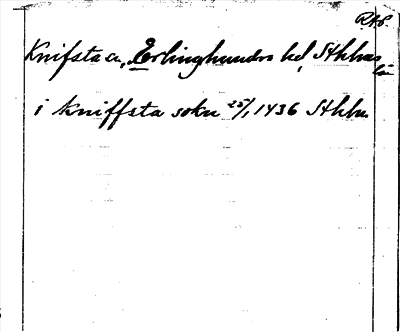 RAP.
Knifsta a, Erlinghundra hd, Sthlms
län
i kniffsta sokn 25/1 1436 Sthlm